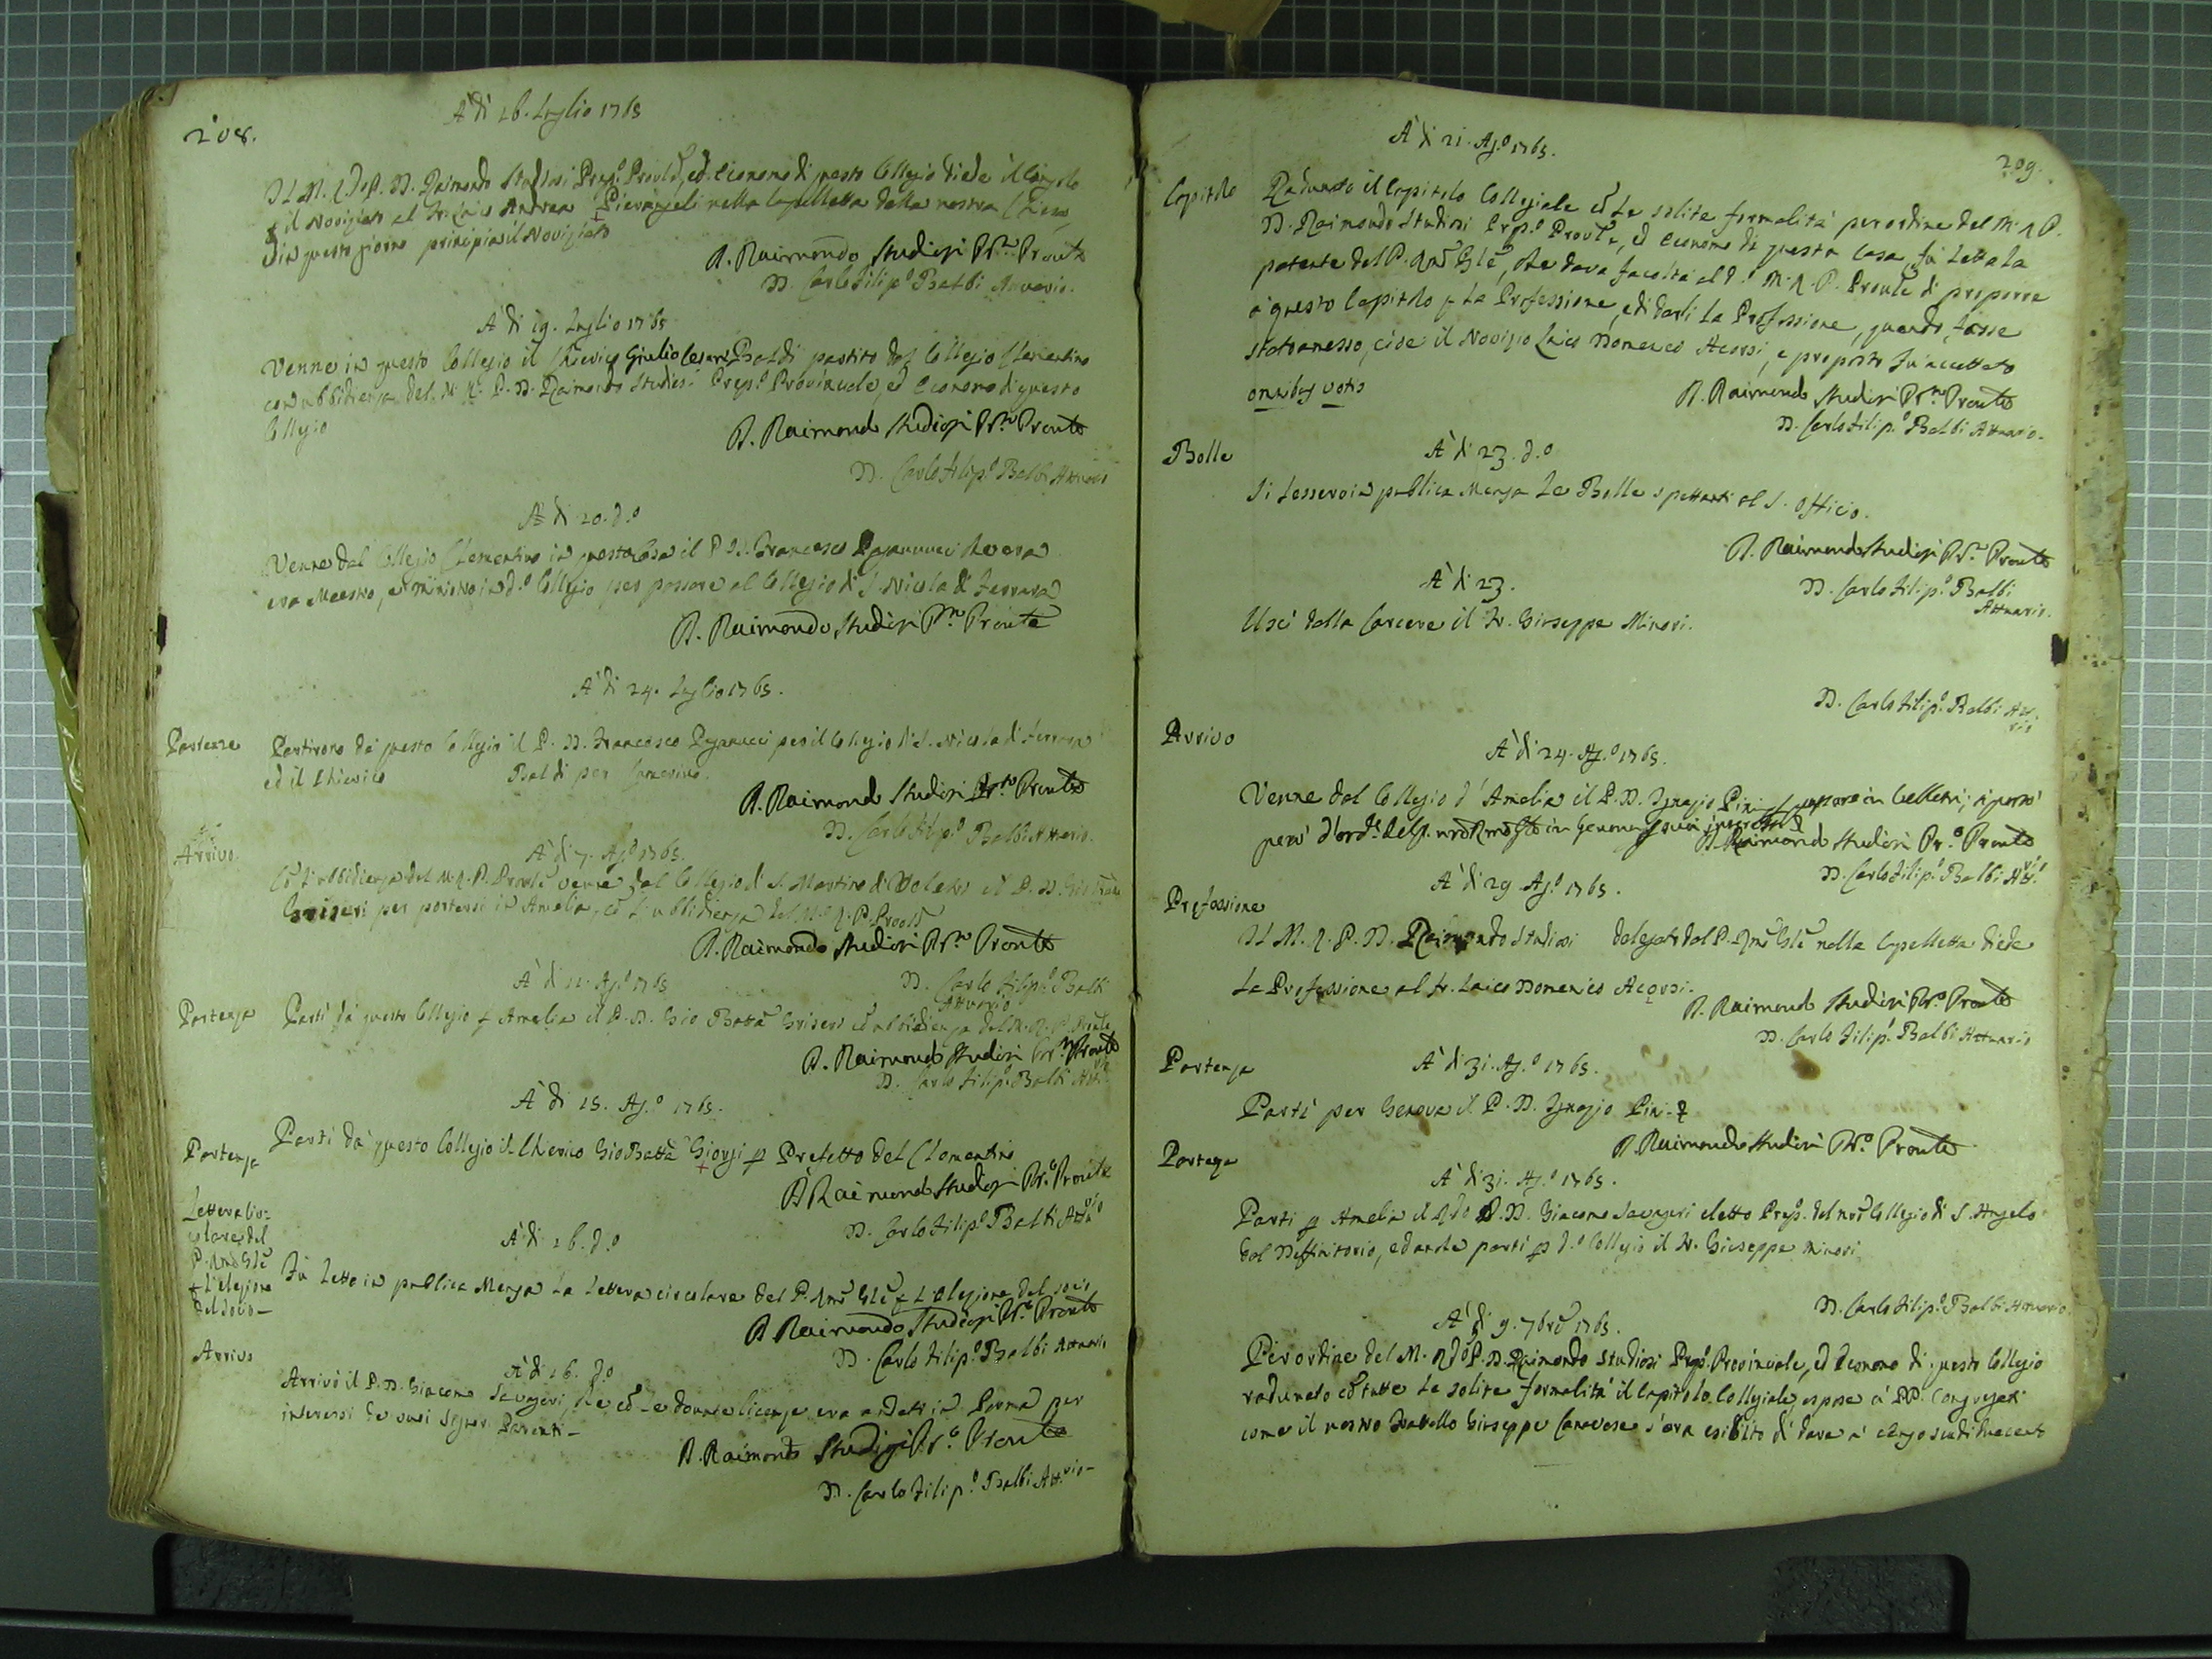 208.
A dì 16. Luglio 1765
Il M. Rdo P. D. Raimondo Studiosi Prepo. Provle, ed Economo di questo Collegio diede il
il Noviziato al Fr. Laico Andrea Pierangeli nella Capelletta della nostra Chiesa
ed in questo giorno principiò il Noviziato
D. Raimondo Studiosi Pr. Provle
D. Carlo Filipo Balbi Attuario.
A dì 19. Luglio 1765
Venne in questo Collegio il Chierico Giulio Cesare Baldi partito dal Collegio Clementino
con ubbidienza del M. R. P. D. Raimondo Studiosi Prepo. Provinciale, ed Economo di questo
Collegio
D. Raimondo Studiosi Pr. Provle
D. Carlo Filipo Balbi Attuario
A dì 20. do
Venne dal Collegio Clementino in questa Casa il P. D. Francesco Paganucci
era Maestro, e ministro in do Collegio per passare al Collegio di S. Nicola di Ferrara
D. Raimondo Studiosi Pr. Provle
A dì 24. Luglio 1765.
Partenze
Partirono da questo Collegio il P. D. Francesco Paganucci per il Collegio di S. Nicola di Ferrara
ed il Chierico Baldi per Camerino.
D. Raimondo Studiosi Pr. Provle
D. Carlo Filipo Balbi Attuario.
Arrivo
A dì 7. Ago 1765.
Co l'ubbidienza del M. R. P. Provle venne dal Collegio di S. Martino di Velletri il P. D. Gio Batta
Griseri per portarsi in Amelia, co l'ubbidienza del M. R. P. Provle
D. Raimondo Studiosi Pr. Provle
D. Carlo Filipo Balbi
Attuario
A dì 11. Ago 1765
Partenza
Partì da questo Collegio p Amelia il P. D. Gio Batta Griseri co ubbidienza del M. R. P. Provle
D. Raimondo Studiosi Pr. Provle
D. Carlo Filipo Balbi Att.
A dì 15. Ago 1765.
Partenza
Partì da questo Collegio il Chierico Gio Batta Giorgi p Prefetto del Clementino
D. Raimondo Studiosi Pr. Provle
D. Carlo Filipo Balbi Attrio
Lettera cir=
colare del
P. Rmo Gle
p l'elezione
del Socio—
A dì 16. do
Fu letta in publica Mensa la lettera circolare del P. Rmo Gle p l'elezione del socio
D. Raimondo Studiosi Pr. Provle
D. Carlo Filipo Balbi Attuario
Arrivo
A dì 16. do
Arrivò il P. D. Giacomo Savageri, che co le dovute licenze era andato in Parma per
interessi de suoi Signori Parenti—
D. Raimondo Studiosi Pr. Provle
D. Carlo Filipo Balbi Att.rio—
209.
A dì 21. Ago 1765.
Capitolo
Radunato il Capitolo Collegiale co le solite formalità per ordine del M. R. P.
D. Raimondo Studiosi Prepo. Provle, ed Economo di questa Casa fu letta la
patente del P. Rmo Gle, che dava facoltà al do M. R. P. Provle di proporre
a questo Capitolo p la Professione, e di darli la Professione, quando fosse
stato amesso, cioè il Novizio Laico Domenico Acorsi, e proposto fu accettato
omnibus votis
D. Raimondo Studiosi Pr. Provle
D. Carlo Filipo Balbi Attuario.
Bolle
A dì 23. do
Si lessero in publica Mensa le Bolle spettanti al S. Officio.
D. Raimondo Studiosi Pr. Provle
D. Carlo Filipo Balbi
Attuario.
A dì 23.
Uscì dalla Carcere il Fr. Giuseppe Minori.
D. Carlo Filipo Balbi Attua
rio
Arrivo
A dì 24. Ago 1765.
Venne dal Collegio d'Amelia il P. D. Ignazio Pini in Velletri; si portò
però d'ordne del P. nro Rmo Gle in Genova p suoi interessi
D. Raimondo Studiosi Pr. Provle
D. Carlo Filipo Balbi Attrio
A dì 29. Ago 1765.
Professione
Il M. R. P. D. Raimondo Studiosi delegato dal P. Rmo Gle nella Capelletta diede
la Professione al fr. Laico Domenico Acorsi.
D. Raimondo Studiosi Pr. Provle
D. Carlo Filipo Balbi Attuario
Partenza
A dì 31. Ago 1765.
Partì per Genova il P. D. Ignazio Pini
D. Raimondo Studiosi Pr. Provle
Partenza
A dì 31. Ago 1765.
Partì p Amelia il Rdo P. D. Giacomo Savageri eletto Prepo. del nro Collegio di S. Angelo
dal Deffinitorio, ed anche partì p do Collegio il Fr. Giuseppe Minori
D. Carlo Filipo Balbi Attuario.
A dì 9. 7bre 1765.
Per ordine del M. Rdo P. D. Raimondo Studiosi Prepo. Provinciale, ed Economo di questo Collegio
radunato co tutte le solite formalità il Capitolo Collegiale espose a PP. Congregati
come il nostro Fratello Giuseppe Canavese s'era esibito di dare a censo scudi ducento